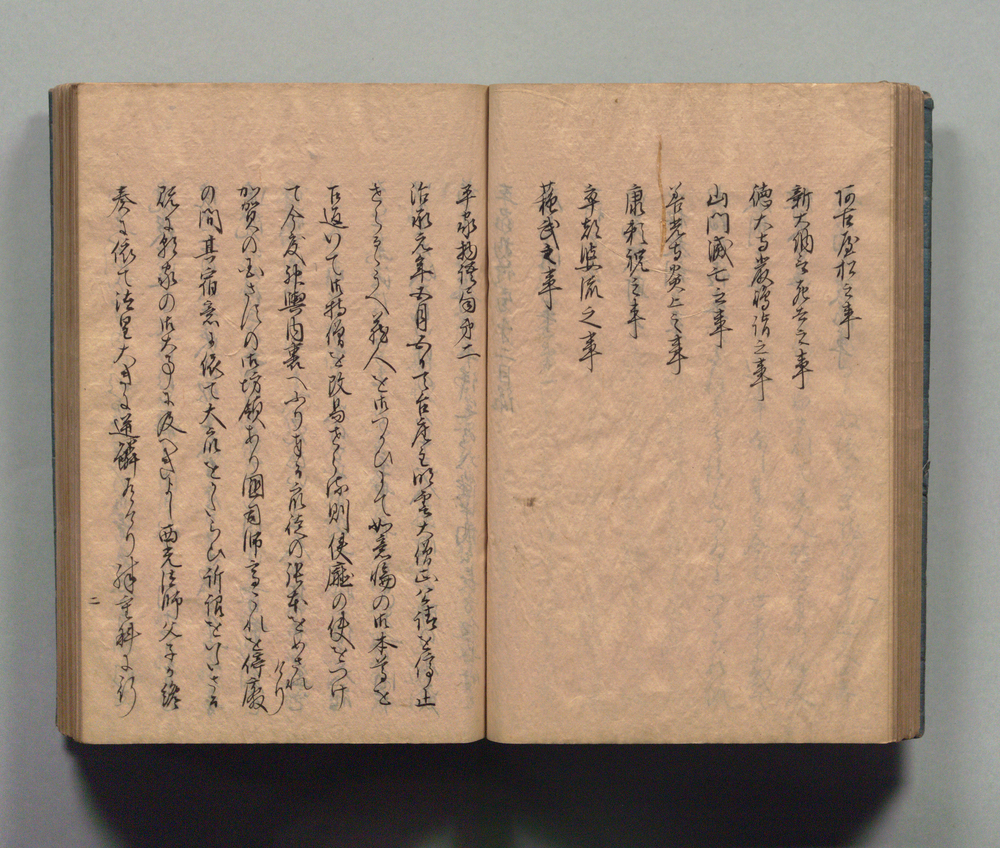 阿古屋松之事
新大納言死去之事
徳大寺厳嶋詣之事
山門滅亡之事
善光寺炎上之事
康頼祝之事
卒都婆流之事
蘇武之事
平家物語 第二
治承元年五月五日天台座主明雲大僧正公請を停止
せらるゝうへ蔵人を御つかひにて如意輪の御本尊を
召返いて御持僧を改易せらる則使庁の使をつけ
て今度神輿内裏へふり奉る衆徒の張本をめされけり
加賀の国に座主の御坊領あり国司師高これを停廃
の間其宿意に依て大衆をかたらひ訴訟をいたさる
既に朝家の御大事に及へきよし西光法師父子か讒
奏に依て法皇大きに逆鱗ありけり殊重科に行
二